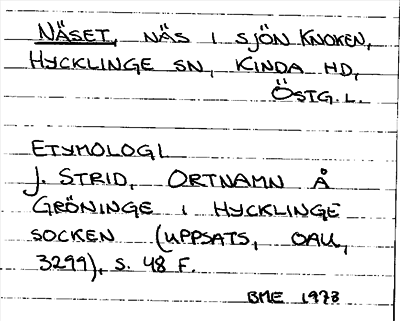 NÄSET, NÄS I SJÖN KNOKEN,
HYCKLINGE SN, KINDA HD,
ÖSTG.L.
ETYMOLOGI
J. STRID, ORTNAMN Å
GRÖNINGE I HYCKLINGE
SOCKEN (UPPSATS, OAU,
3299), S. 48 F.
BME 1973